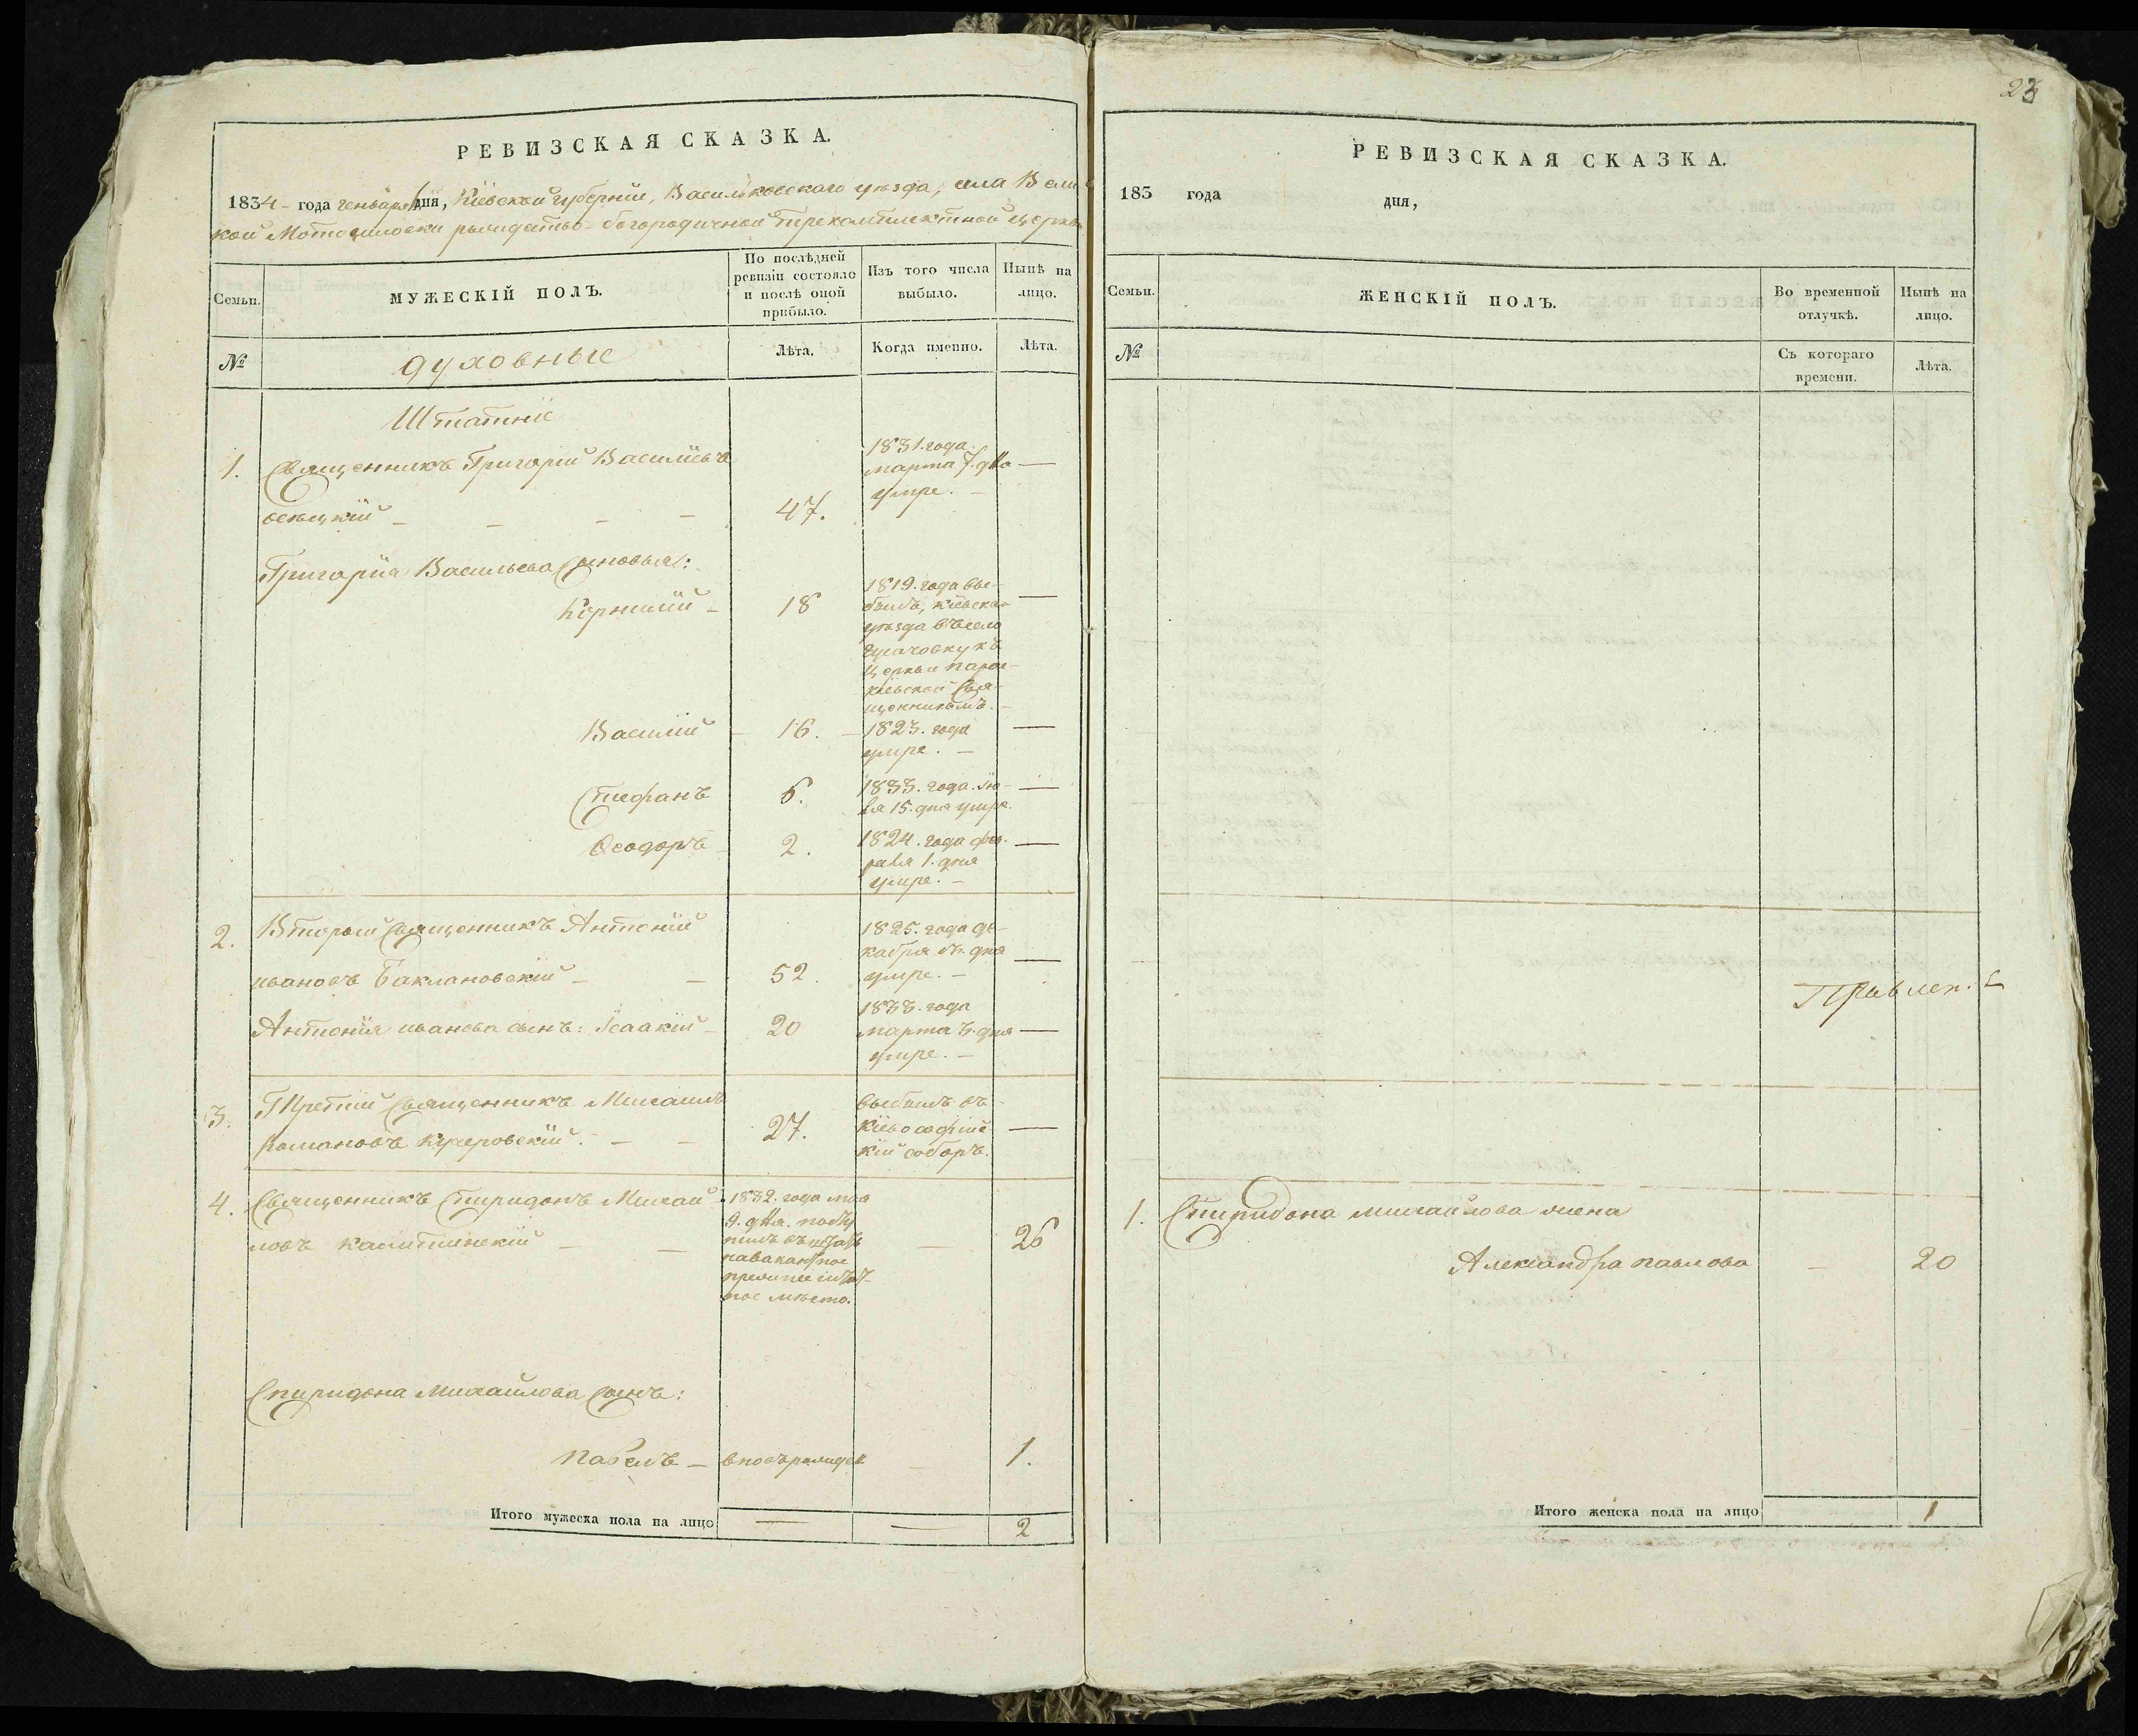 РЕВИЗСКАЯ СКАЗКА.
1834 года генваря дня, Кіевской губерніи, Васильковскаго уѣзда, села Вели
кой Мотовиловки рождество-богородичной трехкомплектной церкви
Семьи.
МУЖЕСКІЙ ПОЛЪ.
По послѣдней ревизіи состояло и послѣ оной прибыло.
Изъ того числа выбыло.
Нынѣ на лицо.
№
духовные
Лѣта.
Когда именно.
Лѣта.
Штатніе
1. Священникъ Григорій Василіевъ
сѣнцкій 47.
1831. года
марта 7. дня
умре.
Григорія Васильева сыновья:
Корнилій 18
1819. года вы-
былъ, кіевска
уѣзда въ село
къ
церкви Парас-
кіевской свя-
щенникомъ.
Василій 16.
1823. года
умре.
Стефанъ 6.
1833. года
15. дня умре.
Ѳеодоръ 2.
1824. года фев-
раля 1. дня
умре.
2. Вторый священникъ Антоній
ивановъ Баклановскій 52.
1825. года де-
кабря дня
умре.
Антонія иванова сынъ: Ісаакій 20
1833. года
марта 3. дня
умре.
3. Третій священникъ Михаилъ
Романовъ Кучеровскій. 27.
выбылъ въ
Кіево софійс
кій соборъ.
4. Священникъ Спиридонъ Михай
ловъ 26
1832. года мая
9. дня. посту
пилъ въ штатъ
на вакантное
штат-
ное мѣсто.
Спиридона Михайлова сынъ:
Павелъ вновь рожден 1.
Итого мужеска пола на лицо 2
23
РЕВИЗСКАЯ СКАЗКА.
183 года дня,
Семьи.
ЖЕНСКІЙ ПОЛЪ.
Во временной отлучкѣ.
Нынѣ на лицо.
№
Съ котораго времени.
Лѣта.
Правлен.
1. Спиридона михайлова жена
Александра павлова 20
Итого женска пола на лицо 1